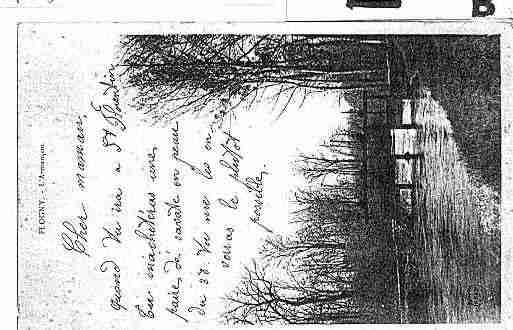 FLOGNY. - L'Armançon
Cher maman,
quand tu ira a St Florentin
tu m'achèteras une
paire de savate en peau
du 38 tu me les en
verras le plutôt
possible.
B